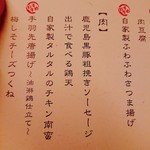 肉豆腐
自家製ふわふわさつま揚げ
【肉】
鹿児島黒豚粗挽きソーセージ
出汁で食べる鶏天
自家製タルタルのチキン南蛮
手羽先唐揚げ~油淋鶏仕立て~
梅しそチーズつくね